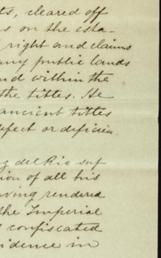 ts, cleared off
s on the esta-
right and claims
any public lands
nd within the
the titles. He
ancient titles
efect or deficien-
g del Rio sup-
ion of all his
aving rendered
the Imperial
confiscated
idence in